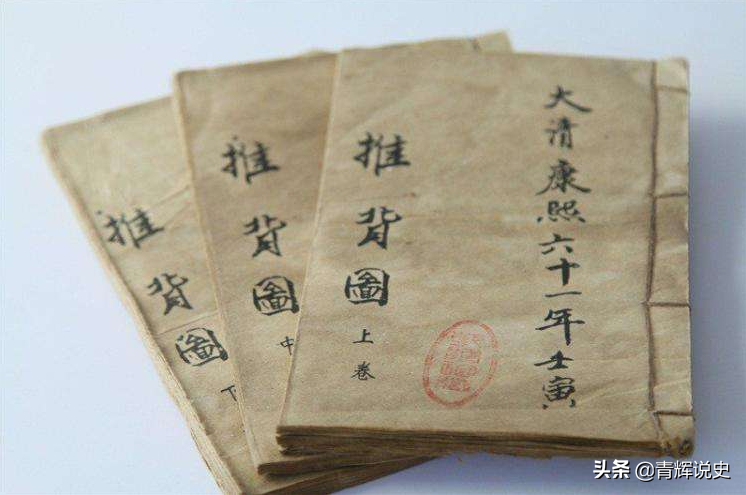 大清康熙六十一年壬寅
推背圖
上卷
推背圖
中
推背圖
下
头条 @青辉说史